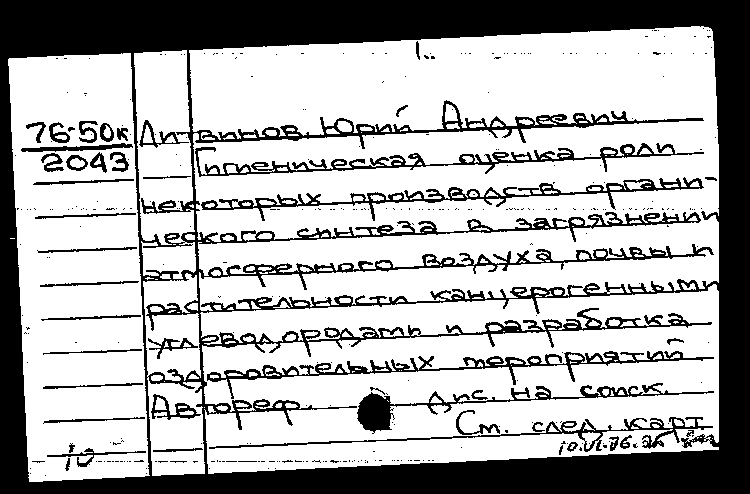 76-50к Литвинов, Юрий Андреевич.
2043 Гигиеническая оценка роли
некоторых производств органи-
ческого синтеза в загрязнении
атмосферного воздуха, почвы и
растительности канцерогенными
углеводородами и разработка
оздоровительных мероприятий
Автореф. Дис. на соиск.
См. след. карт
10 10.VI.76.